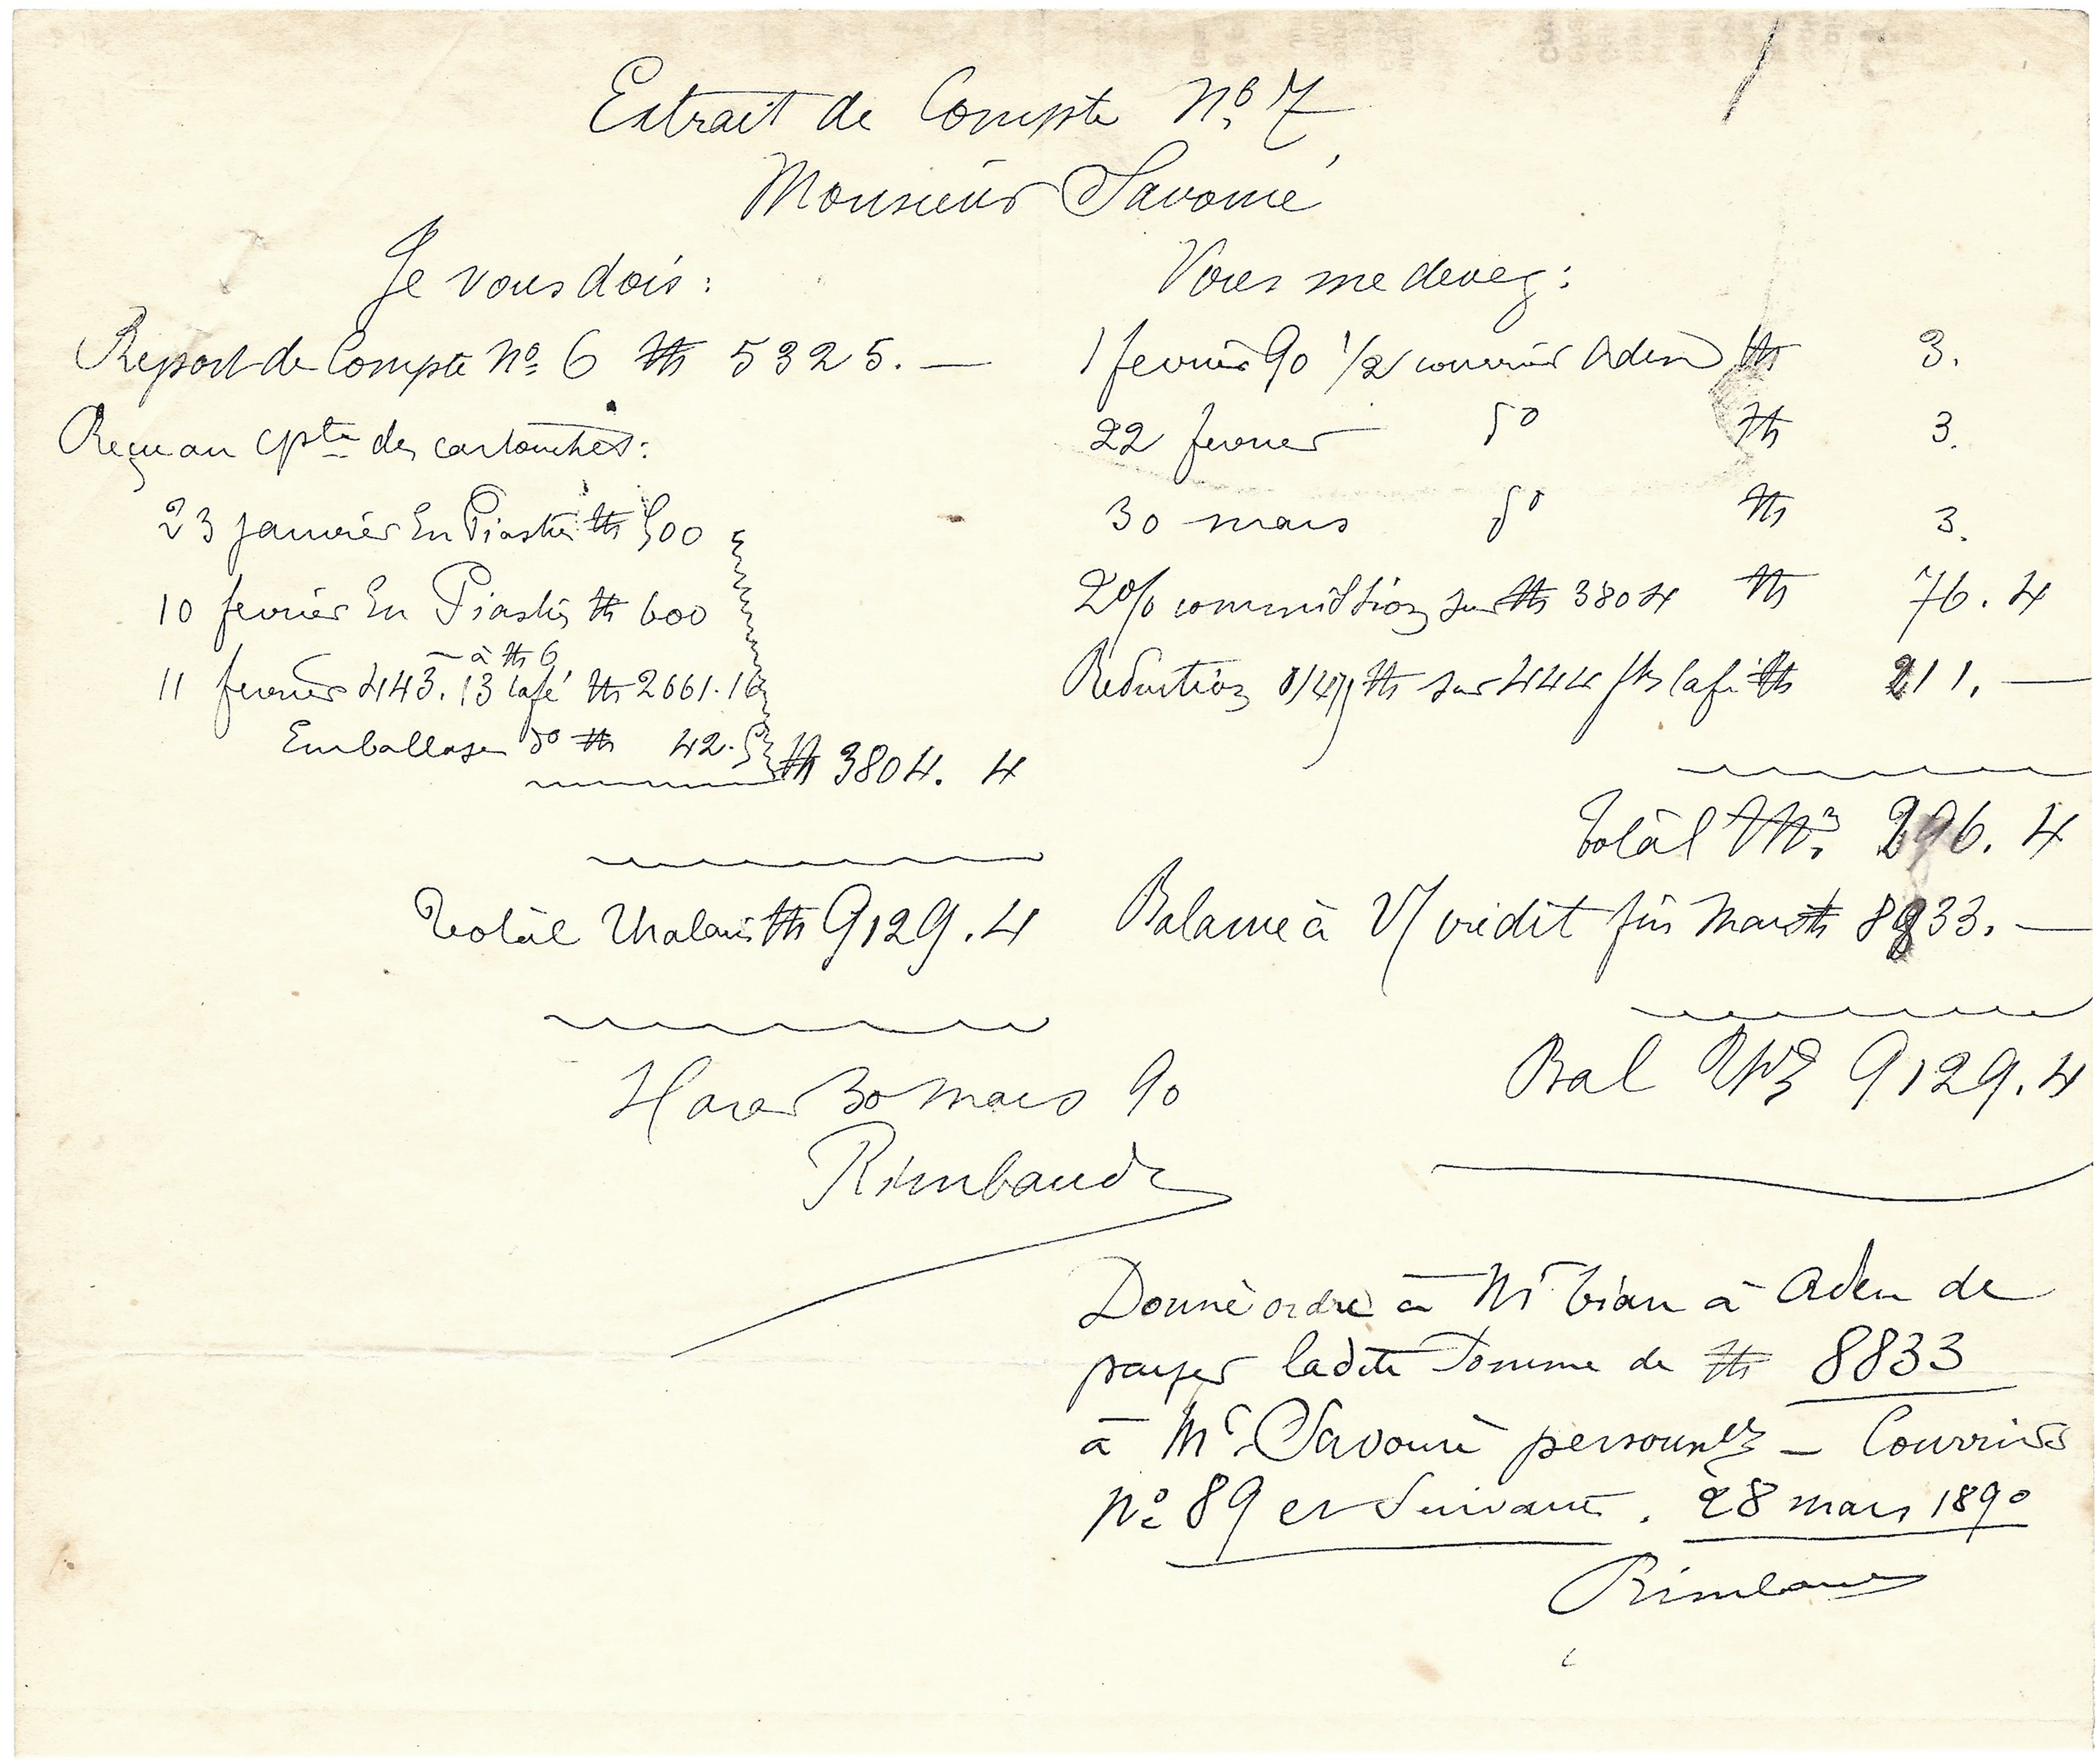 Extrait de Compte No. 7
Monsieur Savouré
Je vous dois :
Report de Compte No. 6 Ths 5325. —
Reçu au cpte des cartouches :
23 janvier En Piastres Ths 500
10 fevrier En Piastres Ths 600
— à Ths 6
11 fevrier 443. 13 café Ths 2661. 16
Emballage do Ths 42. 5
Ths 3804. 4
Total Thalaris Ths 9129. 4
Harar 30 mars 90
Rimbaud
Vous me devez :
1 fevrier 90 1/2 courrier Aden Ths 3.
22 fevrier do Ths 3.
30 mars do Ths 3.
2% commission sur Ths 3804 Ths 76. 4
Reduction sur 444 café Ths 211. —
Total Ths 296. 4
Balance à V/ crédit fin Mars Ths 8833. —
Bal Ths 9129. 4
Donné ordre à Mr Tian à Aden de
payer ladite somme de Ths 8833
à Mr Savouré — Courriers
No. 89 et suivants. 28 mars 1890
Rimbaud